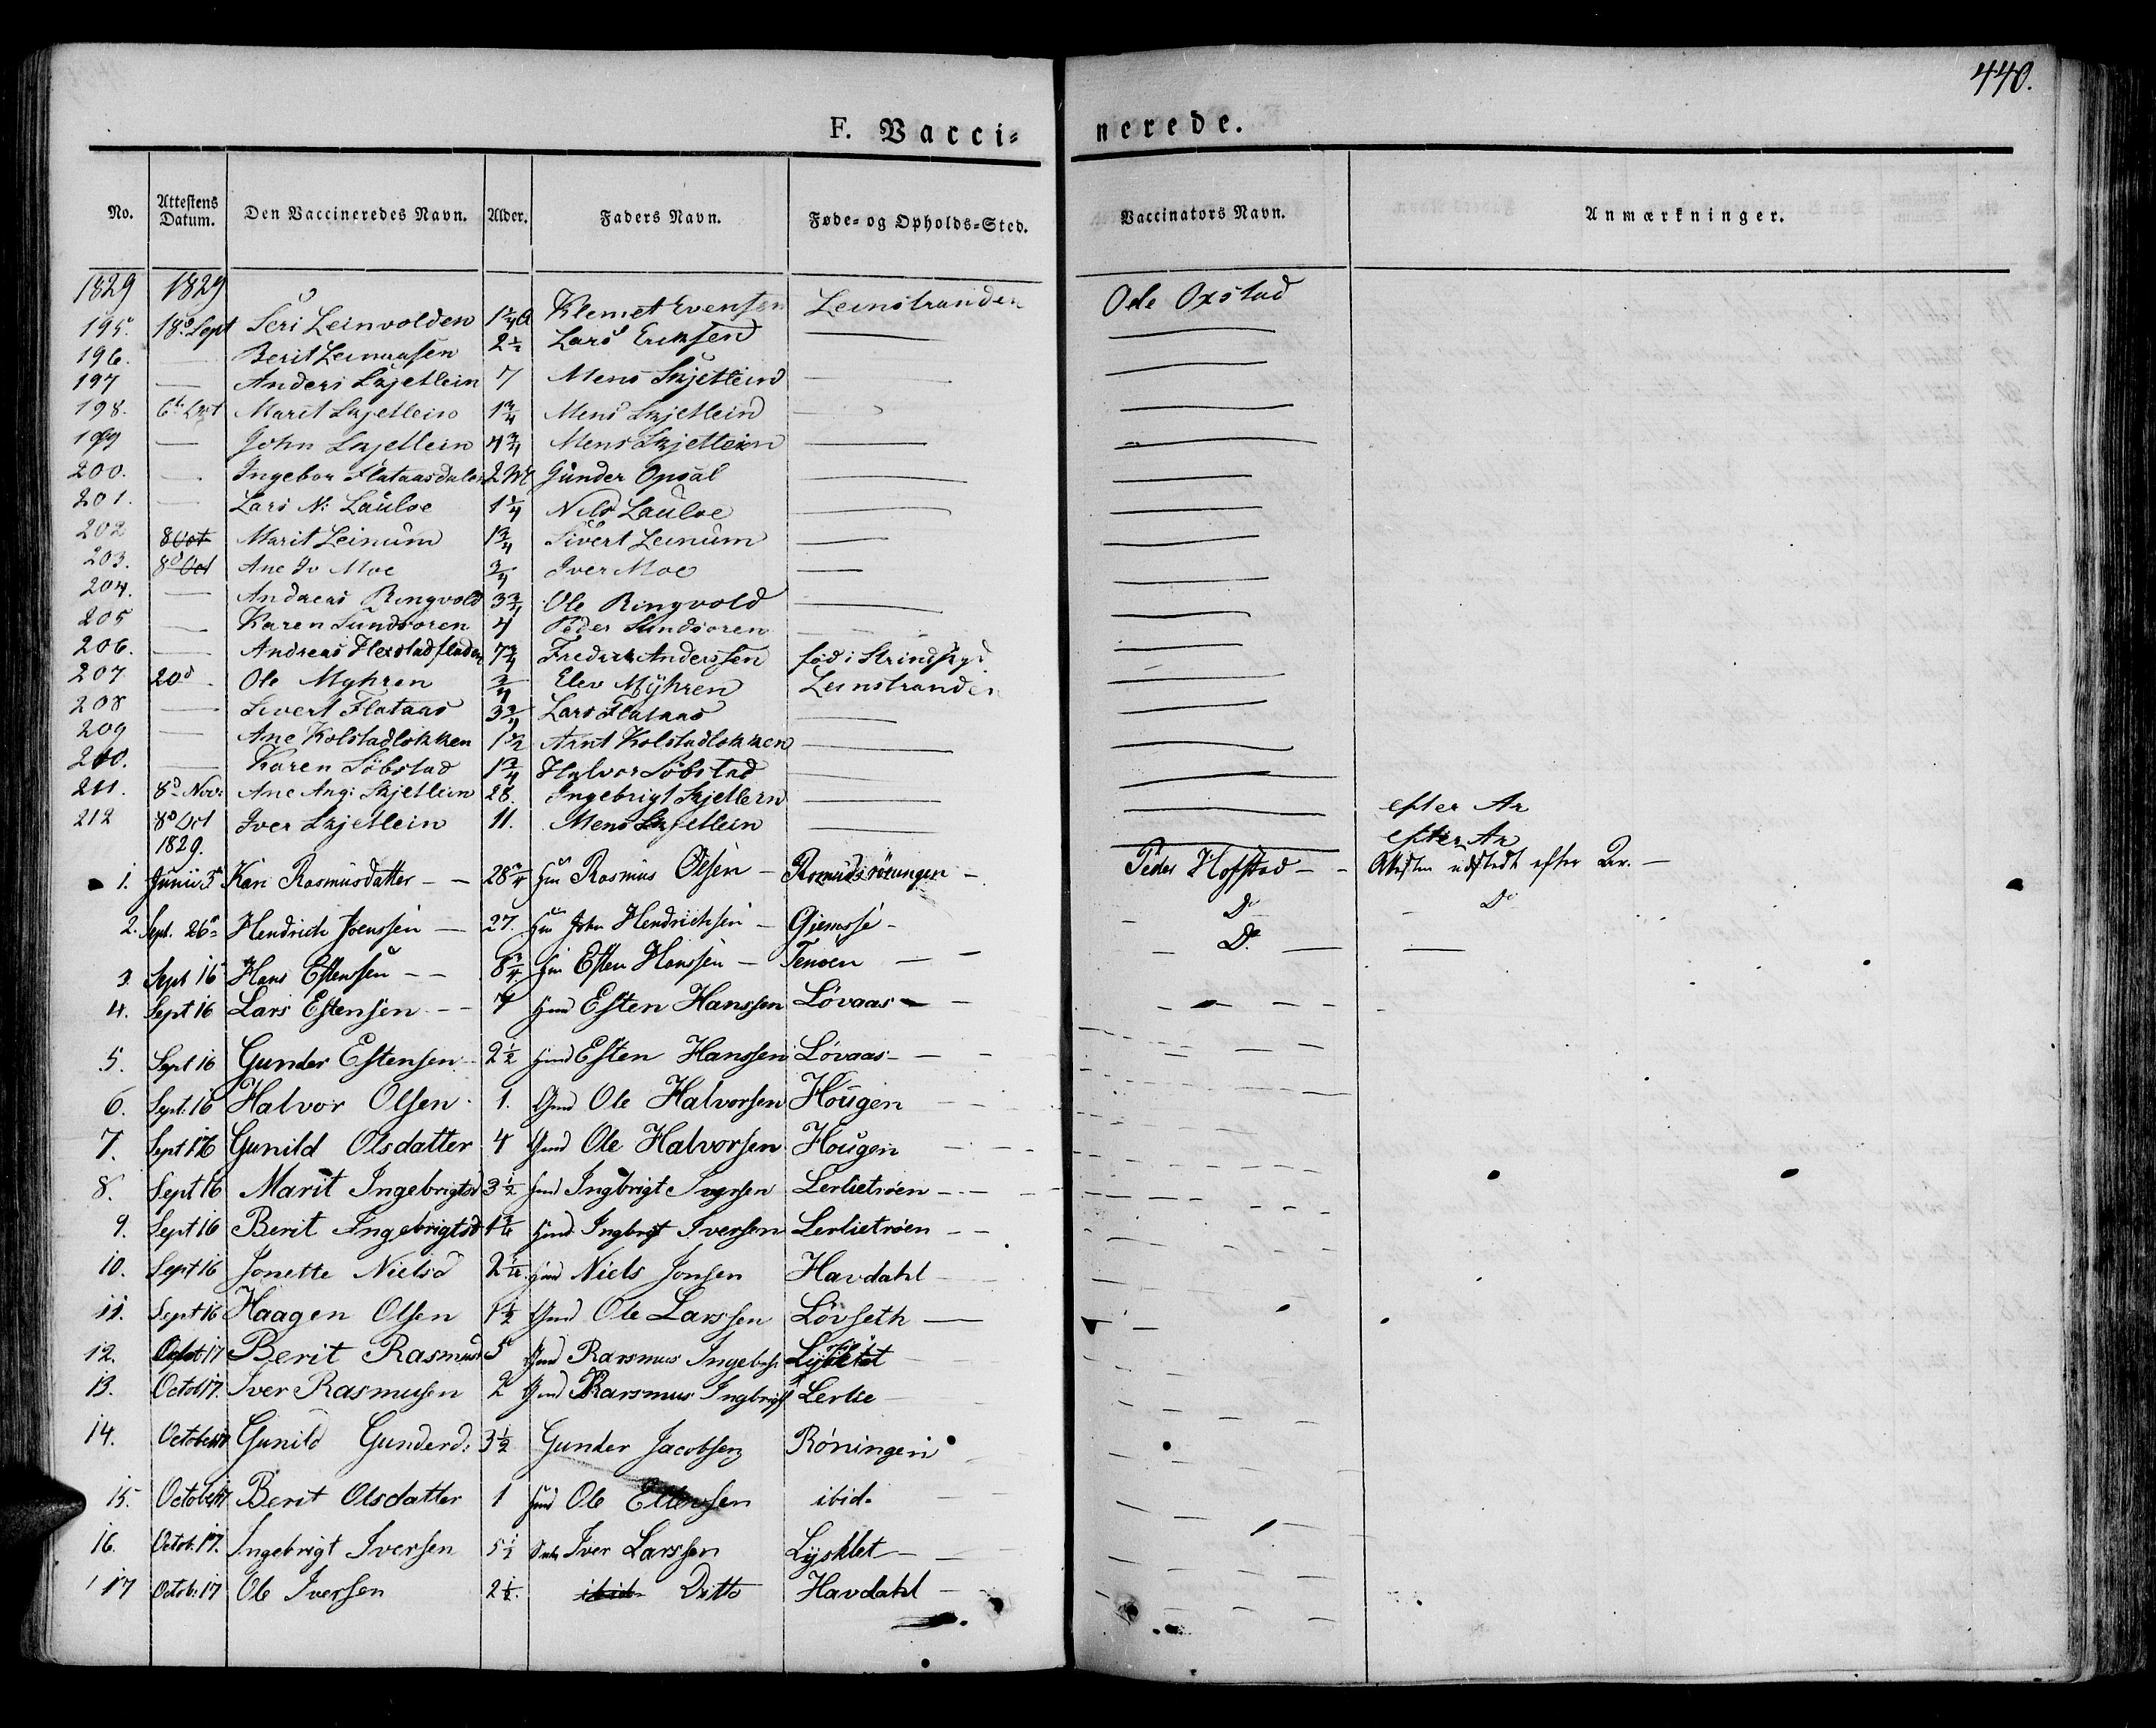 440.
F. Vacci- nerede.
No. Attestens Datum. Den Vaccineredes Navn. Alder. Faders Navn. Føde- og Opholds-Sted. Vaccinators Navn. Anmærkninger.
1829 1829
195. 18d Sept Seri Leinvolden 1 3/4 A Klemet Evensen Leinstranden Ole Oxstad
196. — Berit Leinaasen 2 1/2 Lars Eriksen — —
197 — Anders Skjetlein 7 Mens Skjetlein — —
198. 6te Oct Marit Skjetlein 1 3/4 Mens Skjetlein — —
199 — John Skjetlein 4 3/4 Mens Skjetlein — —
200. — Ingebor Flataasdalen 2 M Gunder Opsal — —
201. — Lars N: Lauloe 1 1/4 Nils Lauloe — —
202 8 Oct Marit Leinum 1 3/4 Sivert Leinum — —
203. 8d Oct Ane Iv Moe 3/4 Iver Moe — —
204. — Andreas Ringvold 3 3/4 Ole Ringvold — —
205 — Karen Sundsoren 4 Peder Sundsoren — —
206. — Andreas Hexstadfladen 7 3/4 Fredrik Anderssen fød i Strind —
207 20d. Ole Myhren 3/4 Elev Myhren Leinstranden —
208 — Sivert Flataas 3 3/4 Lars Flataas — —
209 — Ane Kolstadlokken 1 1/2 Arnt Kolstadlokken — —
210. — Karen Söbstad 1 3/4 Halvor Söbstad — —
211. 8d Nov: Ane Ang: Skjetlein 28. Ingebrigt Skjetlein — — efter An
212 8d Oct Iver Skjetlein 11. Mens Skjetlein — — efter An
1829.
1. Junii 3d Kari Rasmusdatter — 28 3/4 Rasmus Olsen — Peder Hofstad — Attesten udstedt efter
2. Sept. 26d Hendrich Joenssen — 27. John Hendrichsen — Gjemsse — Do — Do
3. Sept 16 Hans Estenssen — 8 3/4 Esten Hanssen — Tenoen — Do —
4. Sept 16 Lars Estensen — 7 Esten Hanssen Lövaas —
5. Sept 16 Gunder Estensen 2 1/2 Esten Hanssen Lövaas —
6. Sept. 16 Halvor Olsen 1. Ole Halvorsen Hougen
7. Sept 16 Gunild Olsdatter 4 Ole Halvorsen Hougen
8. Sept 16 Marit Ingebrigtsd 3 1/2 Ingbrigt Iversen Lerlietröen —
9. Sept 16 Berit Ingebrigtsd Ingbrigt Iversen Lerlietröen —
10. Sept 16 Jonette Nielsd Niels Jonsen Havdahl
11. Sept 16 Haagen Olsen 1 1/2 Ole Larssen Lövseth —
12. Octob 17 Berit Rasmusd 5 Rarsmus Ingebr: Lysklet
13. Octob 17. Iver Rasmusen 2 Rarsmus Ingbrigts Lerlie
14. October 17 Gunild Gunderd: 3 1/2 Gunder Jacobsen Röningen
15. October 17 Berit Olsdatter 1 Ole Ellevsen ibid.
16. Octob. 17. Ingebrigt Iversen 5 1/2 Iver Larssen Lysklet —
17 Octob. 17 Ole Iversen 2 1/2. ibid Ditto Havdahl —